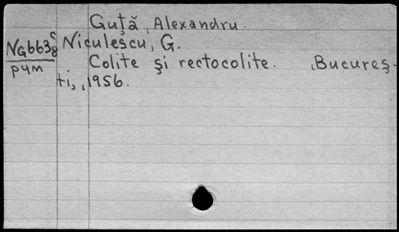 Guță, Alexandru.
Niculescu, G.
рум
Colite și rectocolite. , Bucureș-
ti, , 1956.